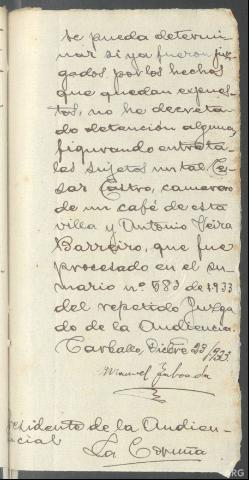 se pueda determi-
nar si ya fueron juz-
gados por los hechos
que quedan expues-
tos, no he decreta-
do detención alguna,
figurando entre ta-
les sujetos un tal Ce-
sar Castro, camarero
de un café de esta
villa y Antonio Veira
Barreiro, que fue
procesado en el su-
mario nº 583 de 1933
del repetido Juzga-
do de la Audiencia.
Carballo, Dicbre 23/933.
Manuel Taboada
residente de la Audien-
cial
La Coruña
RG